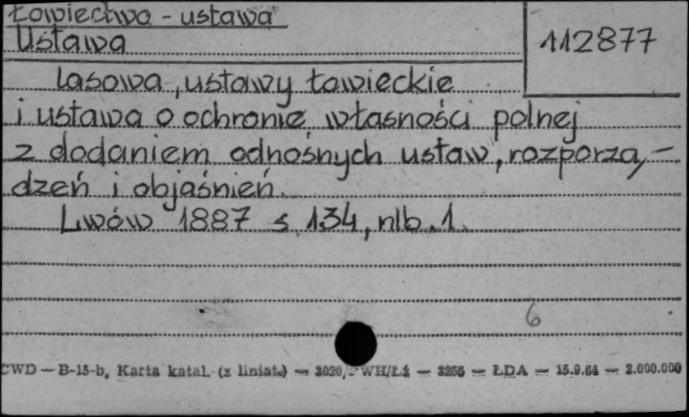 Łowiectwo - ustawa
Ustawa
112877
lasowa, ustawy łowieckie
i ustawa o ochronie własności polnej
z dodaniem odnośnych ustaw, rozporzą-
dzeń i objaśnień.
Lwów 1887 s. 134, nlb. 1.
6
CWD — B-15-b, Karta katal. (z liniat.) — 3020/ WH/Łż — 3256 — ŁDA — 15.9.64 — 2.000.000